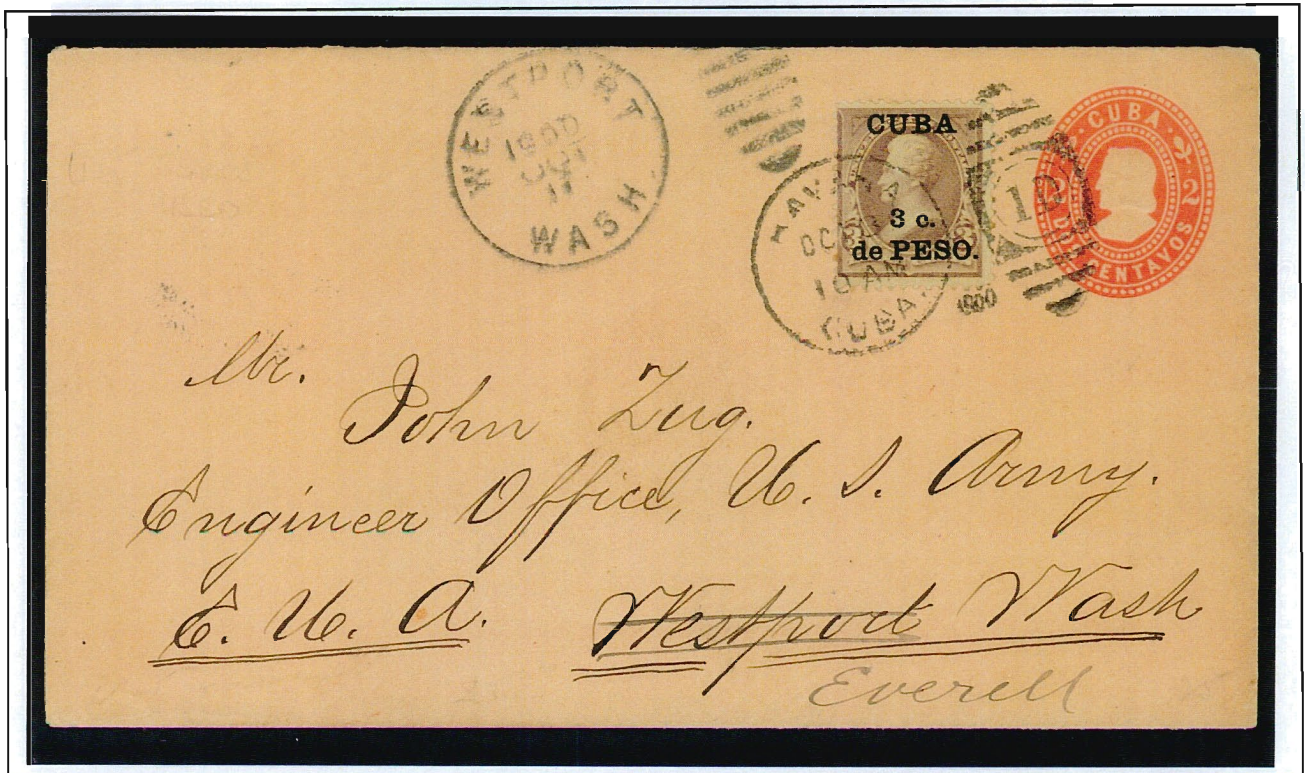 WESTPORT
1900
11
WASH.
CUBA
3 c.
de PESO.
HAVANA
OC
10 AM
CUBA.
1900
10
CUBA
2 2
DOS CENTAVOS
Mr.
John Zug.
Engineer Office, U. S. Army.
E. U. A. Westport Wash
Everett